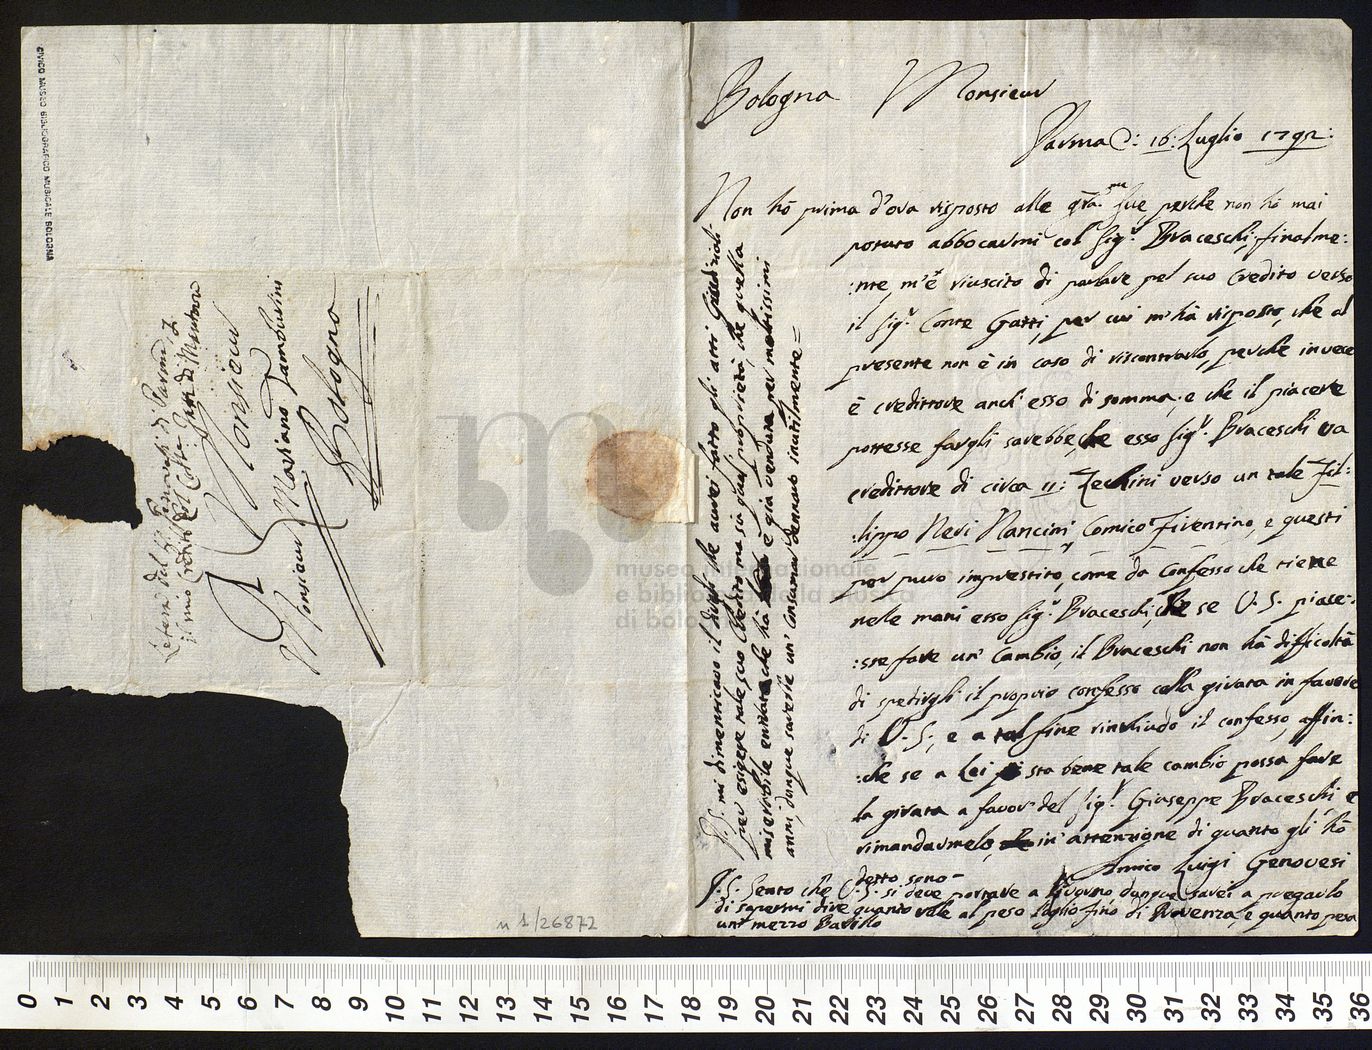 CIVICO MUSEO BIBLIOGRAFICO MUSICALE BOLOGNA
Lettera del Sig. Genovesi di Parma
il mio Credito col Conte Gatti di Mantova
Monsieur
Monsieur Mariano Tamburini
Bologna
n 1/26872
Bologna Monsieur
Parma 16: Luglio 1792:
Non hò prima d'ora risposto alle sue, perche non hò mai
potuto abboccarmi col Sig.r Braceschi; finalme:
:nte m'è riuscito di parlare pel suo Credito verso
il Sig.r Conte Gatti, per cui m'hà risposto, che al
presente non è in caso di riscontrarlo, perche invece
è creditore anch'esso di somma, e che il piacere
potesse fargli sarebbe, che esso Sig.r Braceschi va
creditore di circa 11: Zecchini verso un tale Fil:
:lippo Neri Mancini Comico Fiorentino, e questi
per puro imprestito, come da Confesso che tiene
nelle mani esso Sig.r Braceschi, che se V. S. piace:
:sse fare un' Cambio, il Braceschi non hà difficoltà
di spedirgli il proprio confesso colla girata in favore
di V. S., e a tal fine rinviudo il confesso, affin:
:che se a Lei sta bene tale cambio possa fare
la girata a favor del Sig.r Giuseppe Braceschi, e
rimandarmelo, in' attenzione di quanto gli hò
detto sono-
Amico Luigi Genovesi
P. S. Sento che V. S. si deve portare a Livorno, dunque sarei a pregarlo
di sapermi dire quanto vale al peso l'oglio fino di Provenza, e quanto pesa
un' mezzo Barillo
P. S. mi dimenticavo il dirle che avrei fatto gli atti Giudiziali
per esigere tale suo Credito ma si gual proprietà, che quella
miserabile entrata che hà è già venduta per moltissimi
anni, dunque sarebbe un' Consumar dennaro inutilmente=
museo internazionale
e biblioteca della musica
di bologna
0 1 2 3 4 5 6 7 8 9 10 11 12 13 14 15 16 17 18 19 20 21 22 23 24 25 26 27 28 29 30 31 32 33 34 35 36